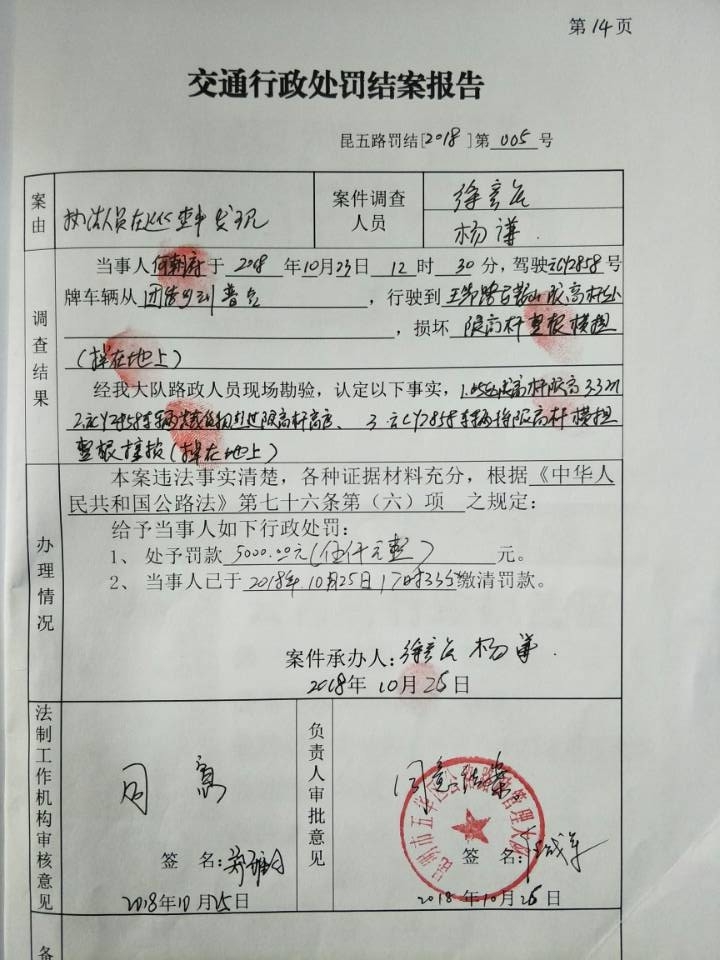 第14页
交通行政处罚结案报告
昆五路罚结[2018]第 005 号
案由
执法人员在巡查中发现
案件调查人员
杨谦
调查结果
当事人何朝府于2018年10月23日12时30分,驾驶云CY2858号
牌车辆从团结乡到普吉,行驶到
,损坏限高杆整根横担
(掉在地上)
经我大队路政人员现场勘验,认定以下事实,1.
2.云CY2858车辆装载物超过限高杆高度、3.云CY2858车辆将限高杆横担
整根撞拔(掉在地上)
办理情况
本案违法事实清楚,各种证据材料充分,根据《中华人
民共和国公路法》第七十六条第(六)项 之规定:
给予当事人如下行政处罚:
1、处予罚款5000.00元(伍仟元整)元。
2、当事人已于2018年10月25日17时33分缴清罚款。
案件承办人: 杨谦
2018年10月25日
法制工作机构审核意见
同意
签 名:
2018年10月25日
负责人审批意见
同意结案
昆明市五华区公路路政管理大队
签 名:
2018年10月25日
备